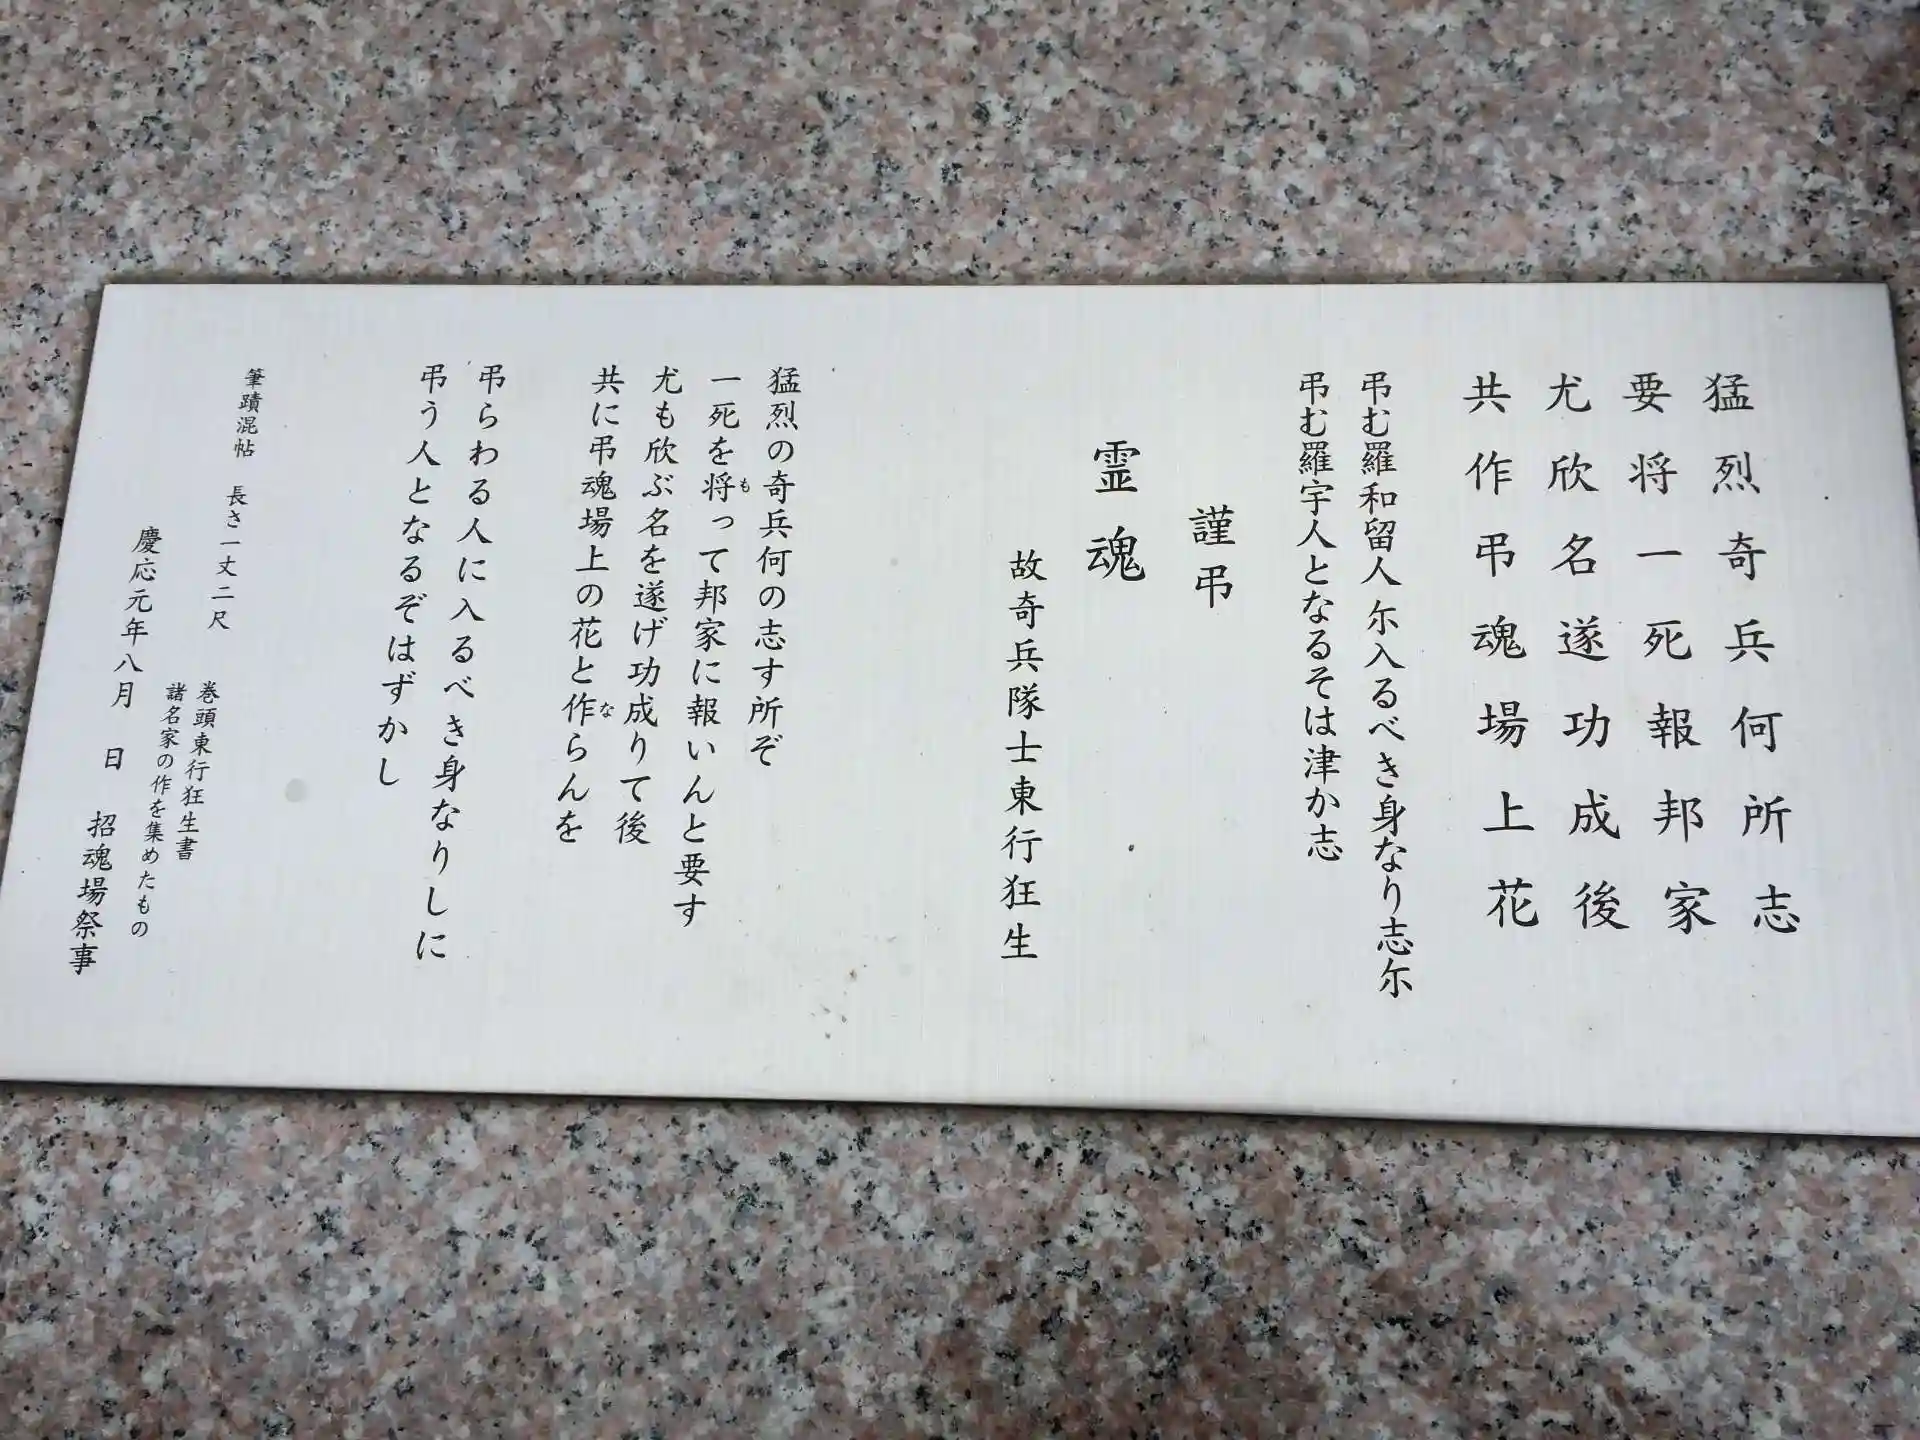 猛烈奇兵何所志
要将一死報邦家
尤欣名遂功成後
共作弔魂場上花
弔む羅和留人尓入るべき身なり志尓
弔む羅宇人となるそは津か志
謹弔
霊魂
故奇兵隊士東行狂生
猛烈の奇兵何の志す所ぞ
一死を将って邦家に報いんと要す
も
尤も欣ぶ名を遂げ功成りて後
共に弔魂場上の花と作らんを
な
弔らわる人に入るべき身なりしに
弔う人となるぞはずかし
筆蹟混帖　長さ一丈二尺
巻頭東行狂生書
諸名家の作を集めたもの
慶応元年八月　日　招魂場祭事